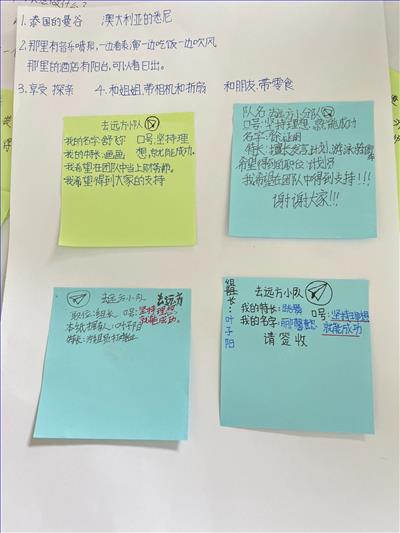 1.泰国的曼谷 澳大利亚的悉尼
2.那里有音乐喷泉,一边看表演一边吃饭一边吹风
那里的酒店有阳台,可以看日出。
3.享受 探亲 4.和姐姐,带相机和折扇 和朋友,带零食
去远方小队
我的名字:舒
口号:坚持理
我的特长:画画
想,就能成功。
我希望在团队中当上财务师。
我希望得到大家的支持
队名:去远方小分队
口号:坚持理想,就能成功
名字:
特长:擅长
希望得到的职位:计划师
我希望在团队中得到支持!!!
谢谢大家!!!
去远方小队 去远方
职位:组长 口号:坚持理想,
就能成功。
本纸拥有人:叶子阳
特长:
组长:叶子阳
去远方小队
我的特长:
口号:坚持理想
我的名字:
就能成功
请签收